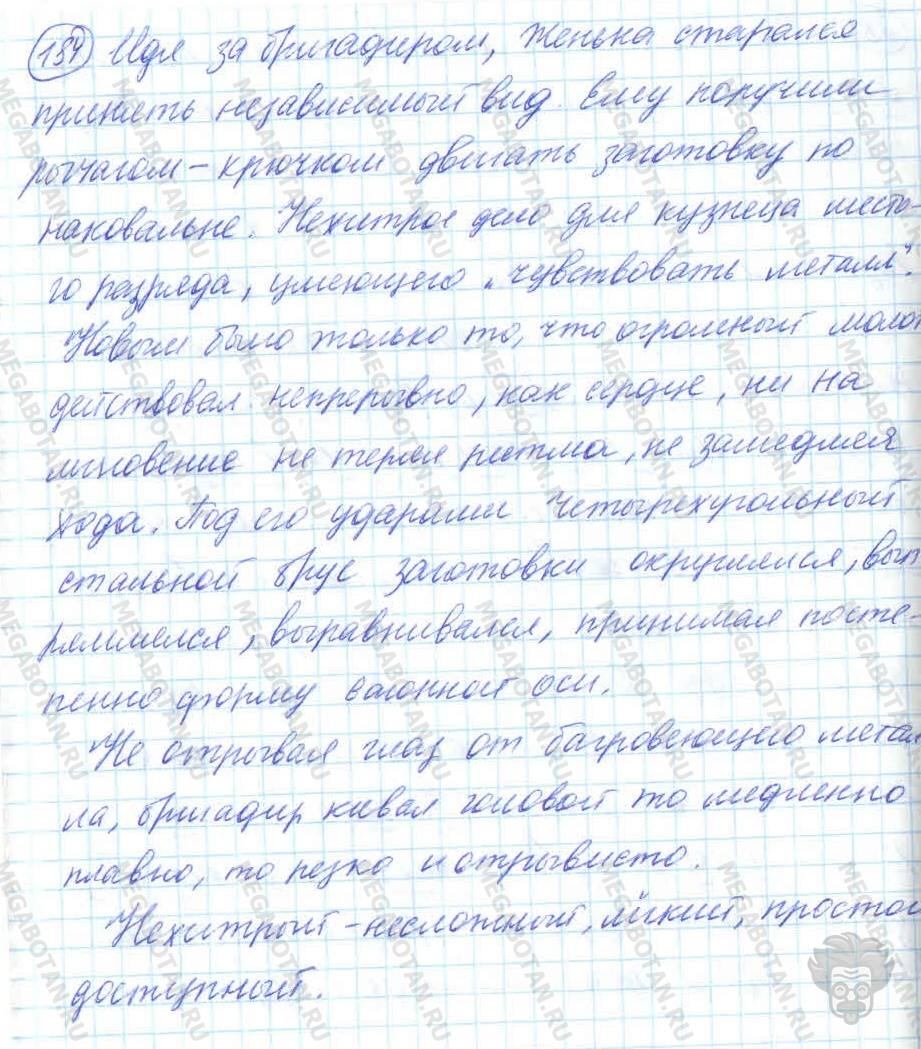 184 Идя за бригадиром, Женька старался
принять независимый вид. Ему поручили
рычагом-крючком двигать заготовку по
наковальне. Нехитрое дело для кузнеца шесто-
го разряда, умеющего „чувствовать металл".
Новым было только то, что огромный молот
действовал непрерывно, как сердце, ни на
мгновение не теряя ритма, не замедляя
хода. Под его ударами четырехугольный
стальной брус заготовки округлялся, вып
рямлялся, выравнивался, принимая посте-
пенно форму вагонной оси.
Не отрывая глаз от багровеющего метал
ла, бригадир кивал головой то медленно
плавно, то резко и отрывисто.
Нехитрый - несложный, лёгкий, простой
доступный.
MEGABOTAN.RU